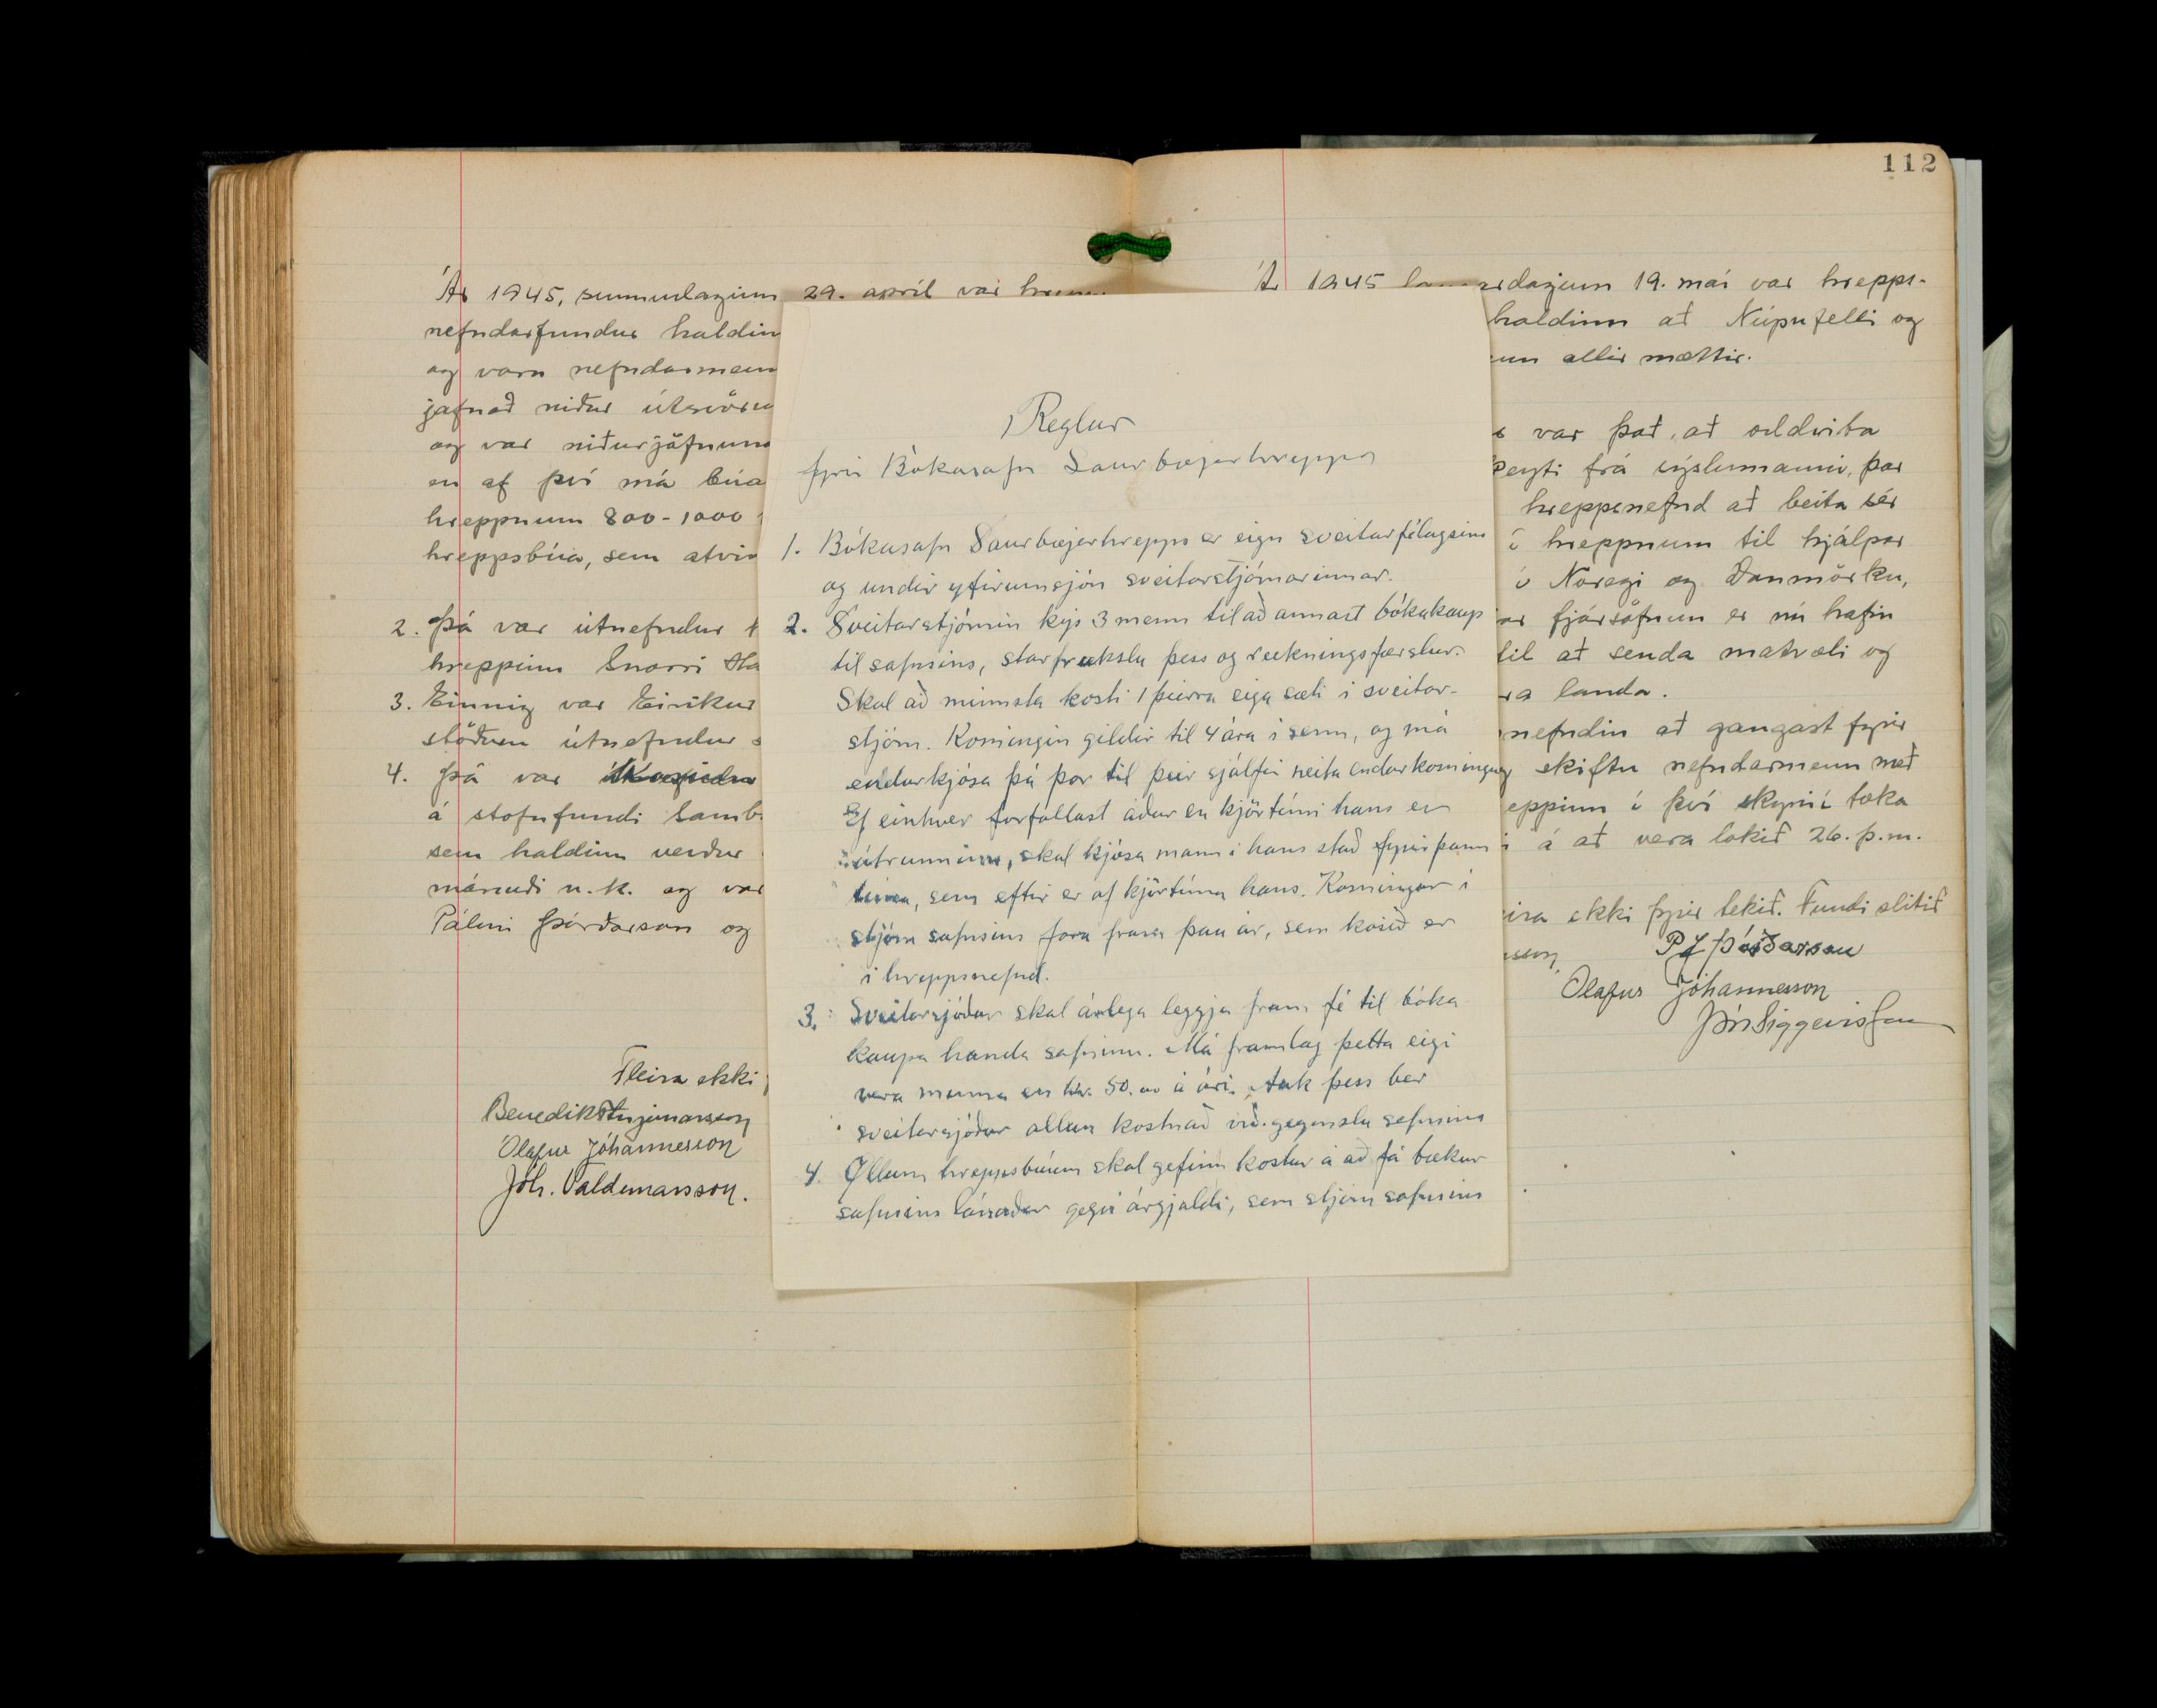 112
Ár 1945, sunnudaginn 29. apríl var
nefndarfundur haldin
og voru nefndarmenn
jafnað niður útsvöru
og var niðurjöfnun
en af því má búa
hreppnum 800-1000
hreppsbúa, sem atvin
2. Þá var útnefndur
hreppinn Snorri
3. Einnig var Eiríkur
stöðum útnefndur
4. Þá var
á stofnfundi Samb
sem haldinn verður
mánuði n.k. og var
Pálmi Þórðarson og
Fleira ekki
Benedikt Ingimarsson
Ólafur Jóhannesson
Jóh. Valdemarsson.
Reglur
fyrir Bókasafn Saurbæjarhrepps
1. Bókasafn Saurbæjarhrepps er eign sveitarfélagsins
og undir yfirumsjón sveitarstjórnarinnar.
2. Sveitarstjórnin kýs 3 menn til að annast bókakaup
til safnsins, starfrækslu þess og reikningsfærslur.
Skal að minnsta kosti 1 þeirra eiga sæti í sveitar-
stjórn. Kosningin gildir til 4 ára í senn, og má
endurkjósa þá þar til þeir sjálfir neita endurkosningu
Ef einhver forfallast áður en kjörtími hans er
útrunninn, skal kjósa mann í hans stað fyrir þann
tíma, sem eftir er af kjörtíma hans. Kosningar í
stjórn safnsins fara fram þau ár, sem kosið er
í hreppsnefnd.
3. Sveitarsjóður skal árlega leggja fram fé til bóka
kaupa handa safninu. Má framlag þetta eigi
vera minna en kr. 50.00 á ári. Auk þess ber
sveitarsjóður allan kostnað við gegnslu safnsins
4. Öllum hreppsbúum skal gefinn kostur á að fá bækur
safnsins lánaðar gegn árgjaldi, sem stjórn safnsins
Ár 1945 laugardaginn 19. maí var hrepps-
haldinn að Núpufelli og
allir mættir.
var það, að oddvita
frá sýslumanni, þar
hreppsnefnd að beita sér
í hreppnum til hjálpar
í Noregi og Danmörku,
fjársöfnun er nú hafin
til að senda matvæli og
landa.
nefndin að gangast fyrir
skiftu nefndarmenn með
hreppinn í því skyni
á að vera lokið 26. þ.m.
ekki fyrir tekið. Fundi slitið
P J Þórðarson
Ólafur Jóhannesson